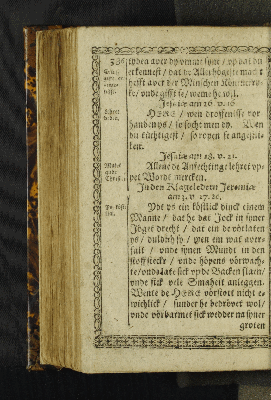 erkennest / dat de Allerhögeste macht
hefft aver der Minschen Könnickry-
ke / vnde gifft se / weme he wil.
Jesaiæ am 26. v. 16
HERE / wen dröffenisse vor
handen ys / so söcht men dy. Wen
du tüchtigest / so ropen se angestli-
ken.
Jesaiæ am 28. v. 21.
Allene de Anfechtinge lehret vp-
pet Wordt mercken.
In den Klageledern Jeremiæ
am 3. v. 27. 28.
Ydt ys ein köstlick dinck einem
Manne / dat he dat Jock in syner
Jöget drecht / dat ein de vörlaten
ys / düldich sy / wen em wat aver-
falt / vnde synen Mundt in den
stoff stecke / vnde höpens vörwach-
te / vnde late sick vp de Backen slaen /
vnde sick vele Smaheit anleggen.
Wente de HERE vörstött nicht e-
wichlick / sunder he bedrövet wol /
vnde vörbarmet sick wedder na syner
groten